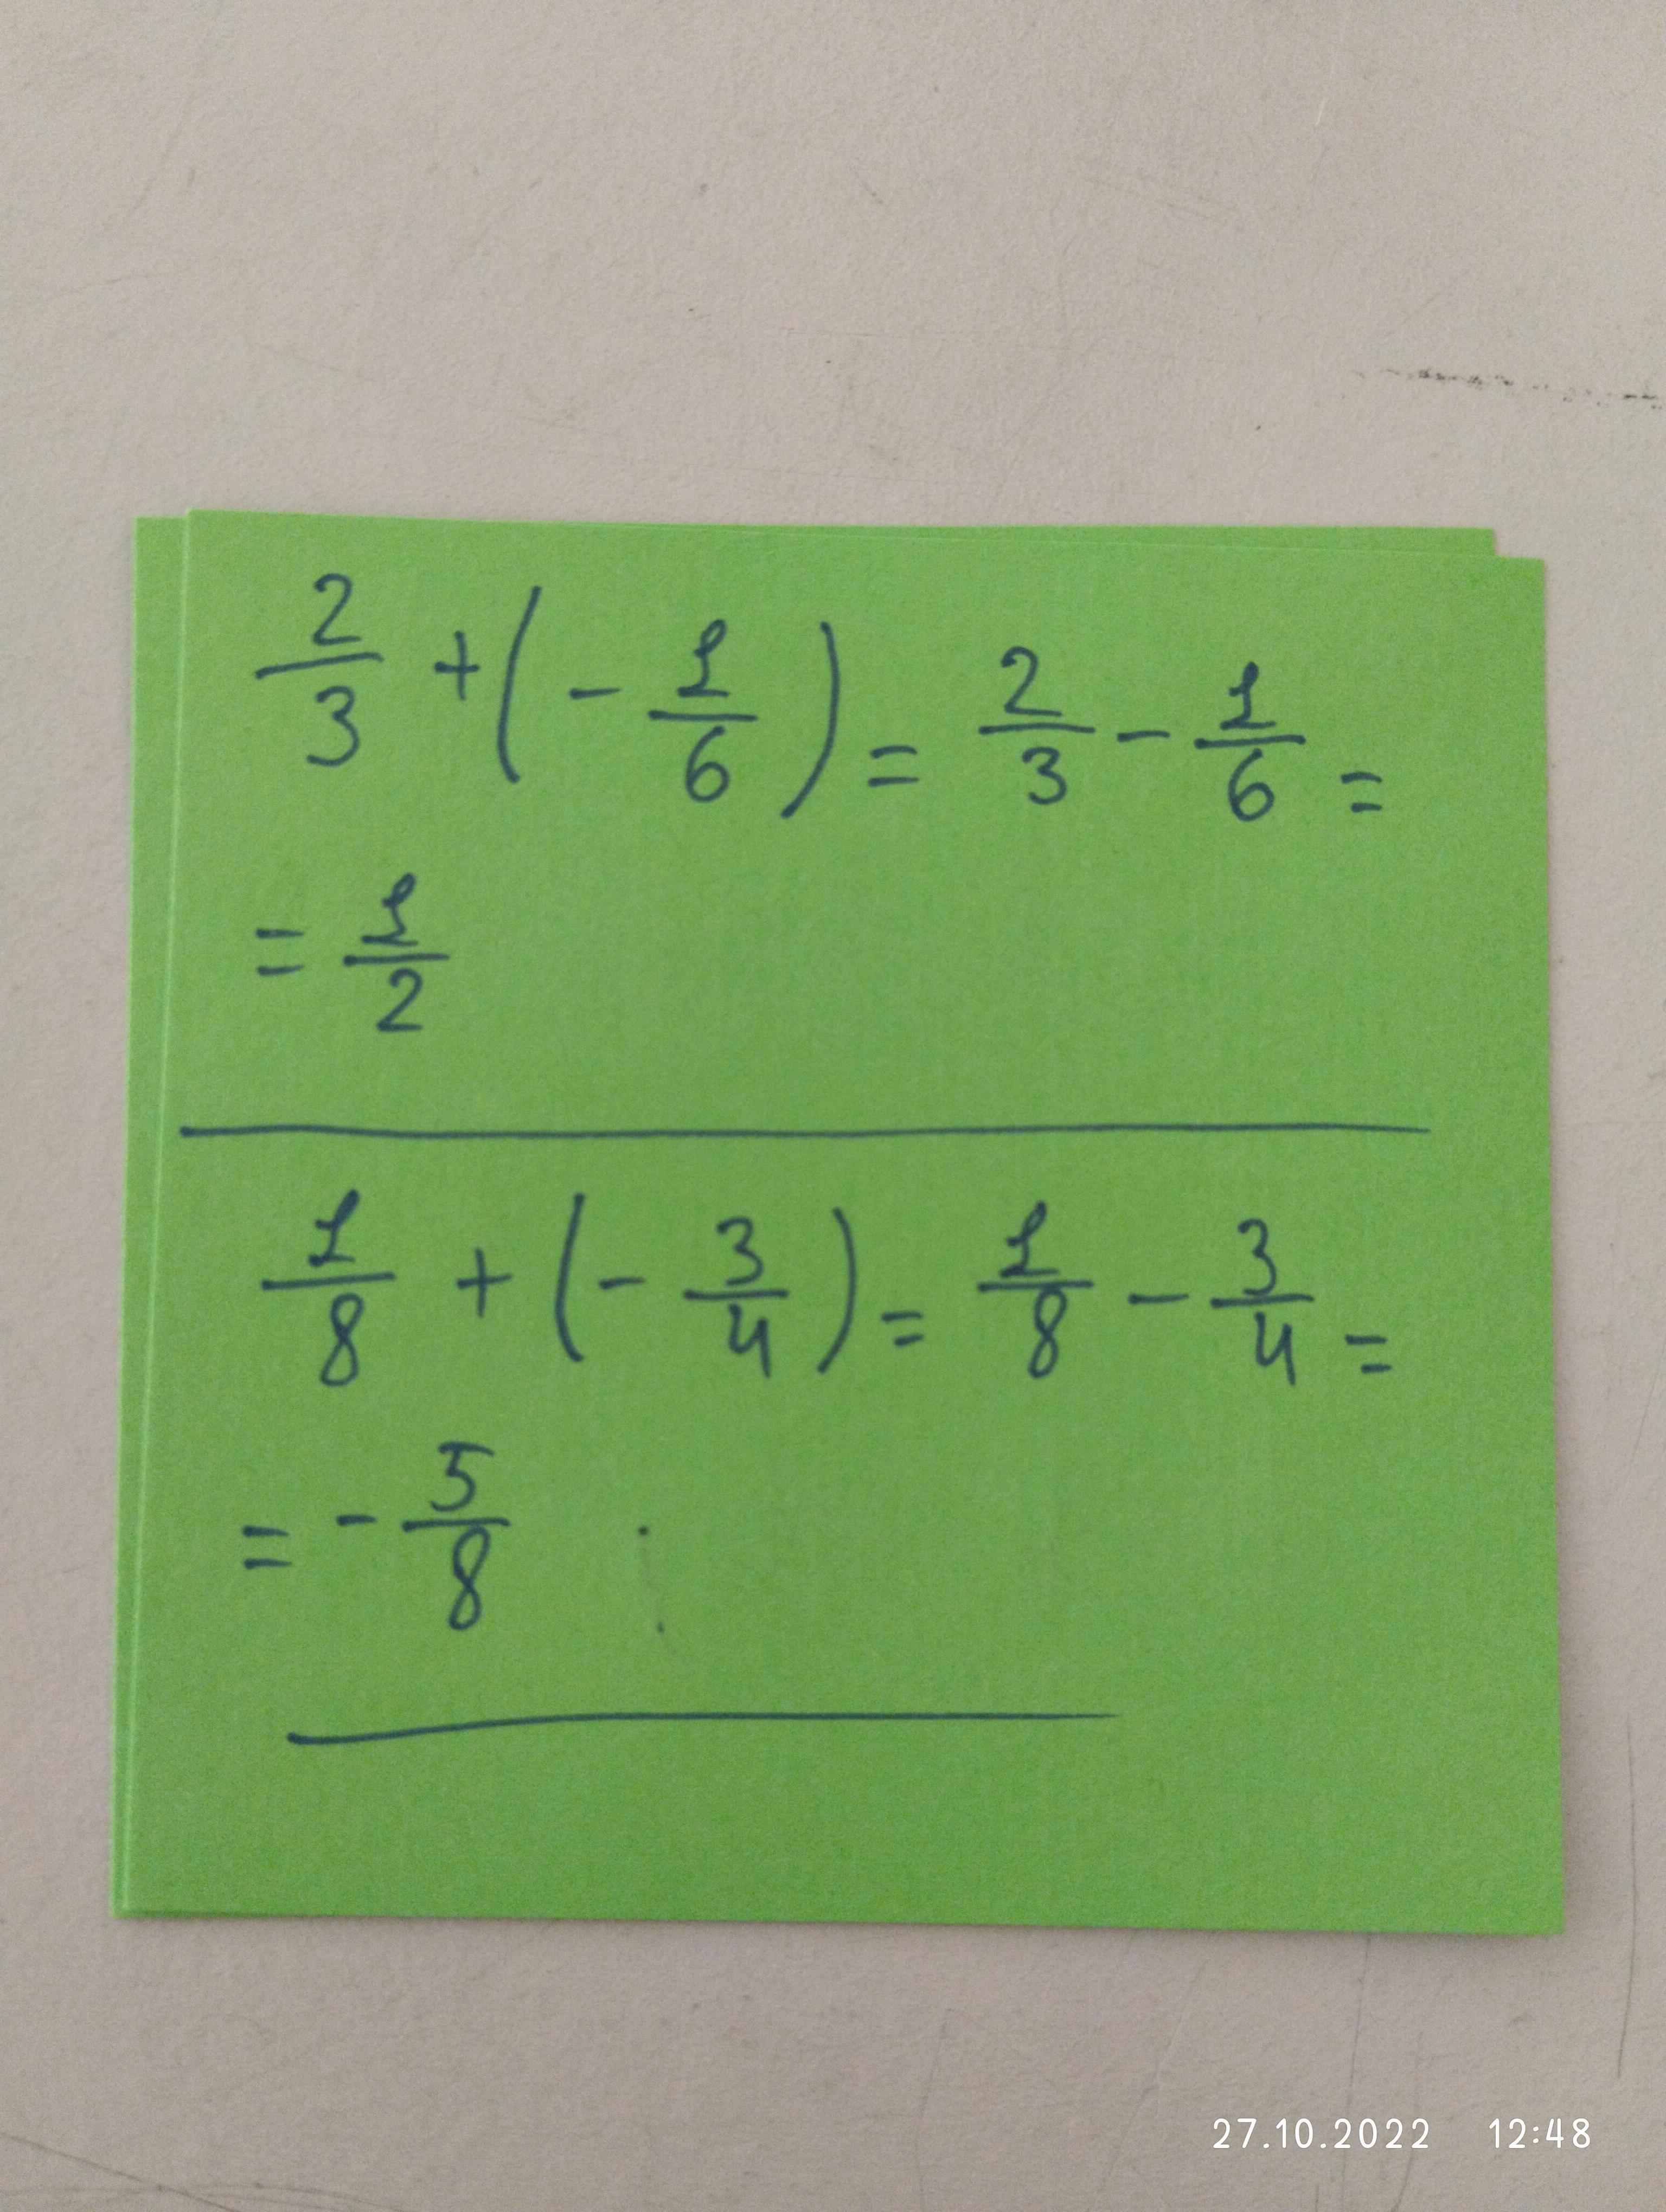 2/3 + (- 1/6) = 2/3 - 1/6 =
= 1/2
1/8 + (- 3/4) = 1/8 - 3/4 =
= - 5/8
27.10.2022 12:48